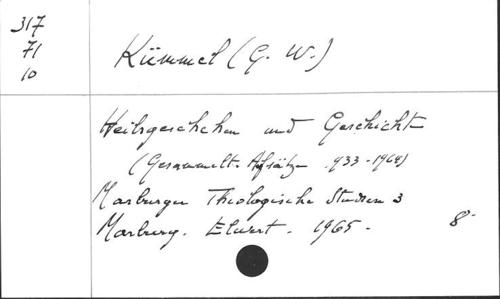 317
71
10
Kümmel (G. W.)
Heilsgeschehen und Geschichte
(Gesammelte Aufsätze 1933-1964)
Marburger Theologische Studien 3
Marburg. Elwert. 1965. 8°